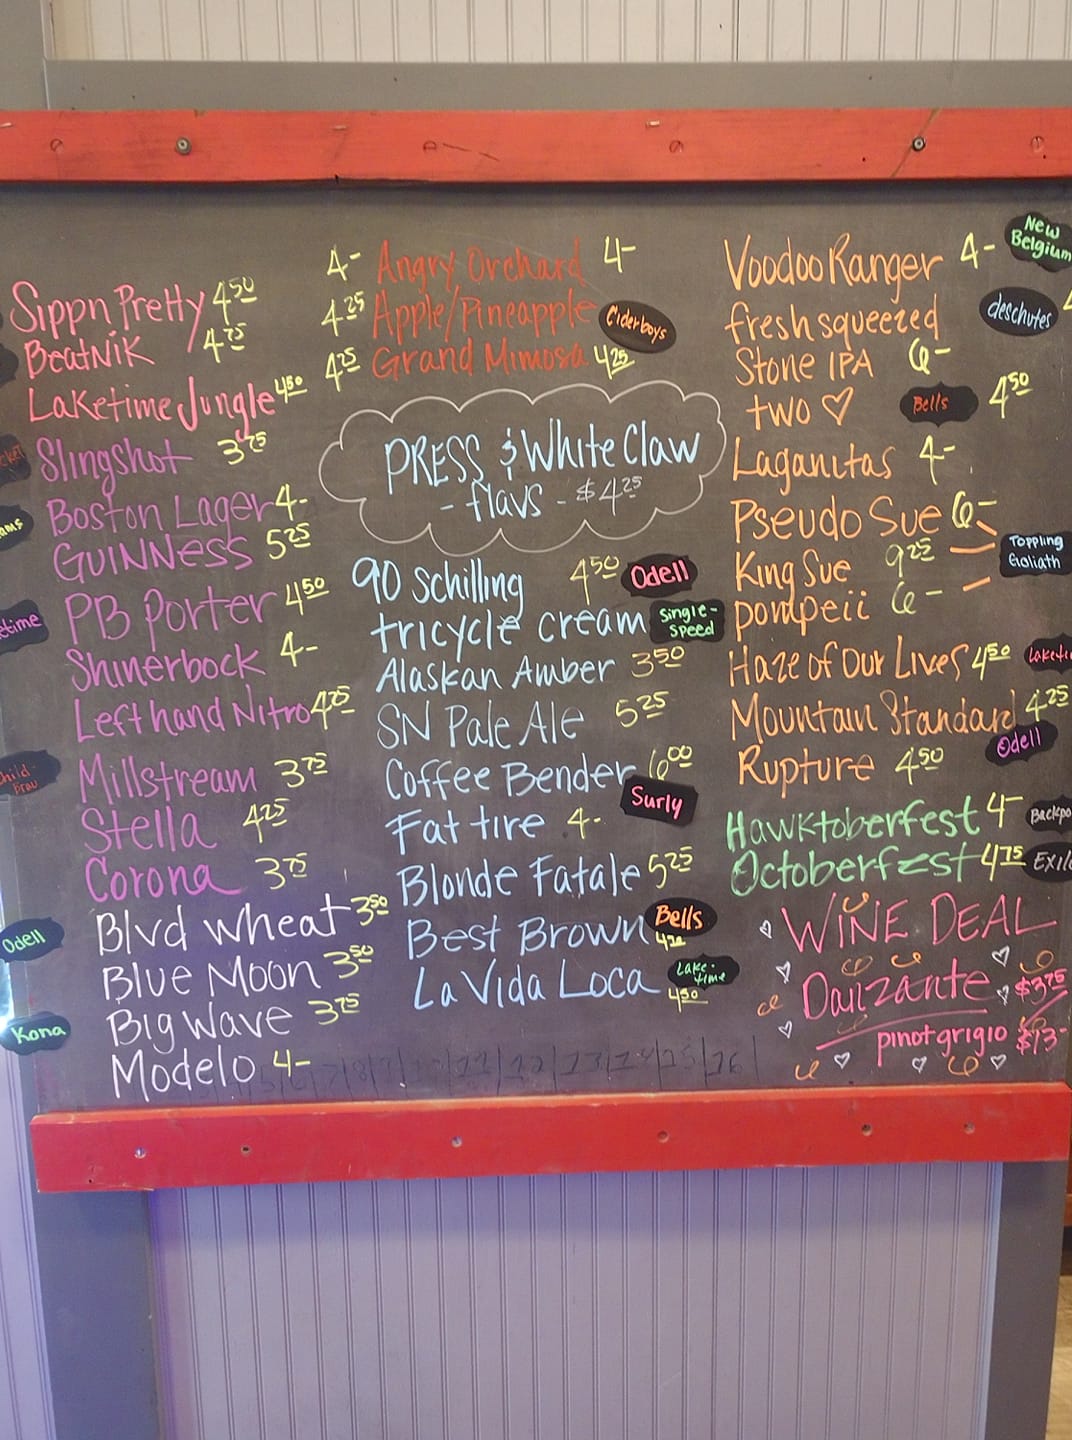 Sippn Pretty 4.50
BeatNiK 4.75
Laketime Jungle 4.50
Slingshot 3.75
Boston Lager 4-
GUINNESS 5.25
PB Porter 4.50
Shinerbock 4-
Left hand Nitro 4.25
Millstream 3.75
Stella 4.25
Corona 3.75
Odell
Blvd Wheat 3.50
Blue Moon 3.50
Kona
Big Wave 3.75
Modelo 4-
4- Angry Orchard 4-
4.25 Apple/Pineapple Ciderboys
4.25 Grand Mimosa 4.25
PRESS & White Claw
- flavs - $4.25
90 Schilling 4.50 Odell
tricycle cream Single-Speed
Alaskan Amber 3.50
SN Pale Ale 5.25
Coffee Bender 6.00
Surly
Fat tire 4-
Blonde Fatale 5.25
Best Brown Bells
La Vida Loca Lake-time
4.50
Voodoo Ranger 4- New Belgium
fresh squeezed deschutes
Stone IPA 6-
TWO ♡ Bells 4.50
Laganitas 4-
Pseudo Sue 6-
King Sue 9.25 Toppling Goliath
pompeii 6-
Haze of Our Lives 4.50
Mountain Standard 4.25
Odell
Rupture 4.50
Hawktoberfest 4-
Octoberfest 4.75
WINE DEAL
Danzante $3.75
pinot grigio $13-